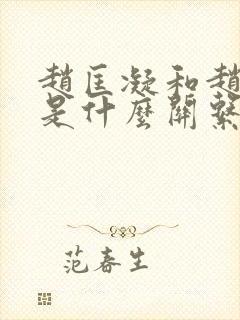 趙匡凝和趙
是什麼關繫
范春生